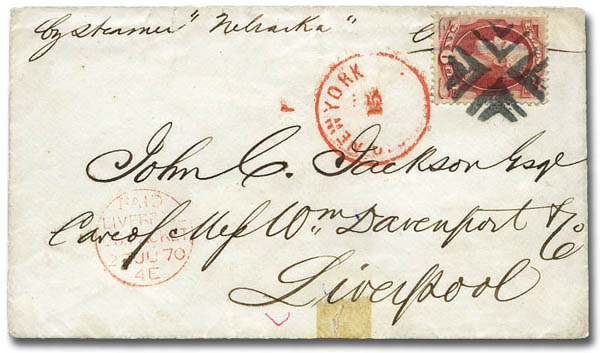 by steamer "Nebraska"
NEW YORK
15
John C. Jackson Esqr
Care of Messrs Wm Davenport & Co
Liverpool
PAID
LIVERPOOL
PACKET
JU 70
4E